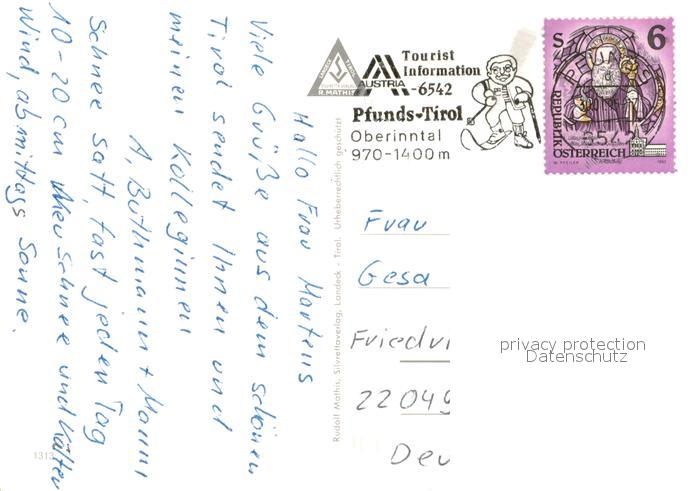 Hallo Frau Martens
Viele Grüße aus dem schönen
Tirol sendet Ihnen und
meinen Kolleginnen
A. Buthmann + Mann
Schnee satt, fast jeden Tag
10-20 cm Neuschnee und kalter
Wind, ab mittags Sonne.
1313
Rudolf Mathis, Silvrettaverlag, Landeck - Tirol. Urheberrechtlich geschützt
R. MATHIS
AUSTRIA
Tourist
Information
-6542
Pfunds-Tirol
Oberinntal
970-1400m
S 6
REPUBLIK
ÖSTERREICH
Frau
Gesa
Friedri
22049
Deu
privacy protection
Datenschutz